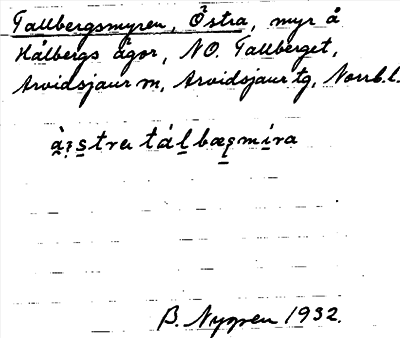 Tallbergsmyren, Östra, myr å
Hålbergs ägor, NO. Tallberget,
Arvidsjaur m, Arvidsjaur tg, Norrb.l.
B. Nyppen 1932.